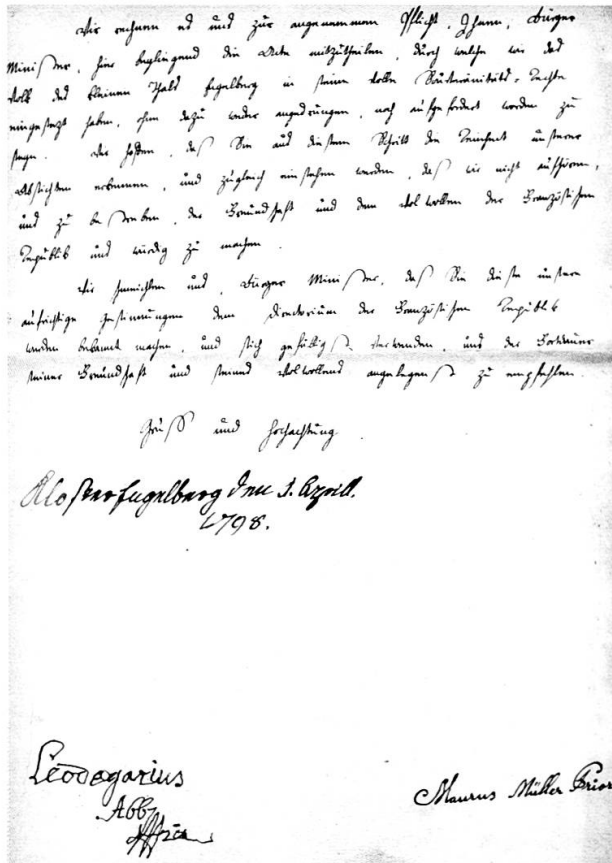 Wir rechnen es uns zur angenemmen Pflicht, Ihnen, Bürger
Minister, hier beyliegend die Acte mitzutheilen, durch welche wir das
Volk des kleinen Thals Engelberg in seine volle Souverainitäts-Rechte
eingesezt haben, ohne dazu weder angedrungen, noch aufgefordert worden zu
seyn. Wir hoffen, daß Sie aus diesem Schritt die Reinheit unserer
Absichten erkennen, und zugleich einsehen werden, daß wir nicht aufhören,
uns zu bestreben, der Freundschaft und dem Wolwollen der Französischen
Republik uns würdig zu machen.
Wir schmeicheln uns, Bürger Minister, daß Sie diese unsere
aufrichtige Gesinnungen dem Directorium der Französischen Republik
werden bekannt machen, und sich gefälligst verwenden, uns der Fortdauer
seiner Freundschaft und seines Wolwollens angelegenst zu empfehlen.
Gruß und Hochachtung
Kloster Engelberg den 1. April.
1798.
Leodegarius
Abb
Maurus Müller Prior